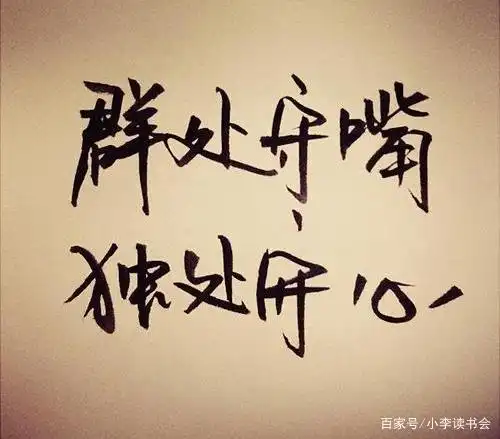 群处守嘴
独处守心
百家号/小李读书会